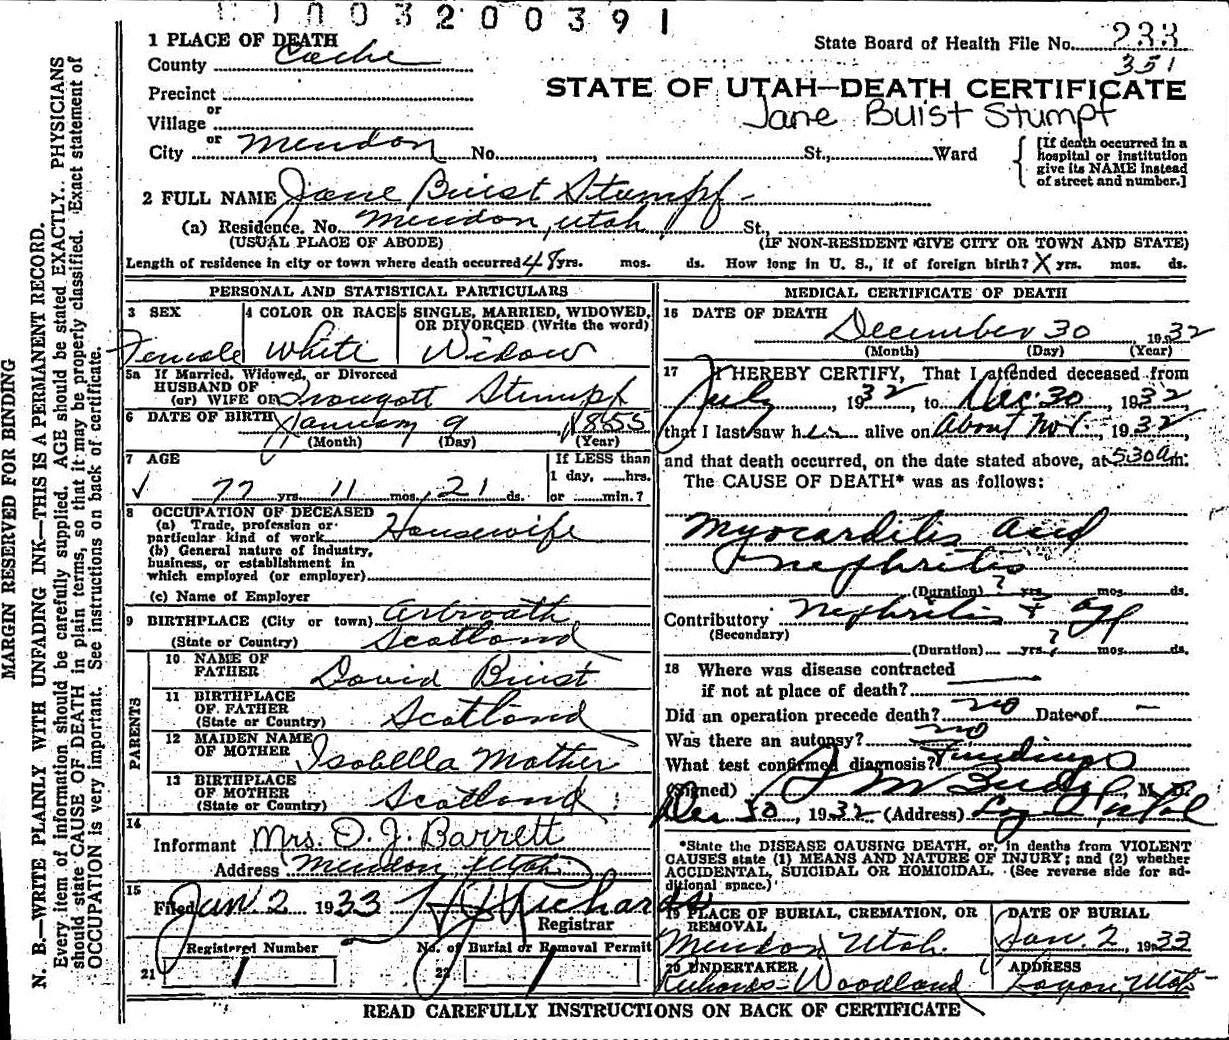 1003200391
1 PLACE OF DEATH
County Cache
State Board of Health File No. 233
351
Precinct
or
Village
or
City Mendon No. , St., Ward
STATE OF UTAH—DEATH CERTIFICATE
Jane Buist Stumpf
[If death occurred in a hospital or institution give its NAME instead of street and number.]
2 FULL NAME Jane Buist Stumpf
(a) Residence. No. Mendon, Utah St.,
(USUAL PLACE OF ABODE) (IF NON-RESIDENT GIVE CITY OR TOWN AND STATE)
Length of residence in city or town where death occurred 48 yrs. mos. ds. How long in U. S., if of foreign birth? X yrs. mos. ds.
PERSONAL AND STATISTICAL PARTICULARS
3 SEX
Female
4 COLOR OR RACE
White
5 SINGLE, MARRIED, WIDOWED, OR DIVORCED (Write the word)
Widow
5a If Married, Widowed, or Divorced
HUSBAND OF
(or) WIFE OF Traugott Stumpf
6 DATE OF BIRTH January 9 1855
(Month) (Day) (Year)
7 AGE
✓ 77 yrs. 11 mos. 21 ds.
If LESS than
1 day, ......hrs.
or ......min.?
8 OCCUPATION OF DECEASED
(a) Trade, profession or
particular kind of work Housewife
(b) General nature of industry,
business, or establishment in
which employed (or employer)
(c) Name of Employer
9 BIRTHPLACE (City or town) Arbroath
(State or Country) Scotland
PARENTS
10 NAME OF
FATHER David Buist
11 BIRTHPLACE
OF FATHER
(State or Country) Scotland
12 MAIDEN NAME
OF MOTHER Isabella Mather
13 BIRTHPLACE
OF MOTHER
(State or Country) Scotland
14
Informant Mrs. O. J. Barrett
Address Mendon, Utah
15
Filed Jan. 2 1933 Richards
Registrar
Registered Number
21 1
No. of Burial or Removal Permit
22 1
MEDICAL CERTIFICATE OF DEATH
16 DATE OF DEATH
December 30 1932
(Month) (Day) (Year)
17 I HEREBY CERTIFY, That I attended deceased from
July , 1932, to Dec. 30, 1932,
that I last saw her alive on About Nov., 1932,
and that death occurred, on the date stated above, at 530 a m.
The CAUSE OF DEATH* was as follows:
Myocarditis and
nephritis
(Duration) ? yrs. mos. ds.
Contributory Nephritis + age
(Secondary)
(Duration) yrs. ? mos. ds.
18 Where was disease contracted
if not at place of death?
Did an operation precede death? no Date of —
Was there an autopsy? no
What test confirmed diagnosis? Findings
(Signed) M. D.
Dec 30, 1932 (Address)
*State the DISEASE CAUSING DEATH, or, in deaths from VIOLENT
CAUSES state (1) MEANS AND NATURE OF INJURY; and (2) whether
ACCIDENTAL, SUICIDAL OR HOMICIDAL. (See reverse side for ad-
ditional space.)
19 PLACE OF BURIAL, CREMATION, OR
REMOVAL
Mendon Utah.
DATE OF BURIAL
Jan. 2 1933
20 UNDERTAKER
Richards-Woodland
ADDRESS
Logan, Utah
READ CAREFULLY INSTRUCTIONS ON BACK OF CERTIFICATE
MARGIN RESERVED FOR BINDING
N. B.—WRITE PLAINLY WITH UNFADING INK—THIS IS A PERMANENT RECORD.
Every item of information should be carefully supplied. AGE should be stated EXACTLY. PHYSICIANS
should state CAUSE OF DEATH in plain terms, so that it may be properly classified. Exact statement of
OCCUPATION is very important. See instructions on back of certificate.